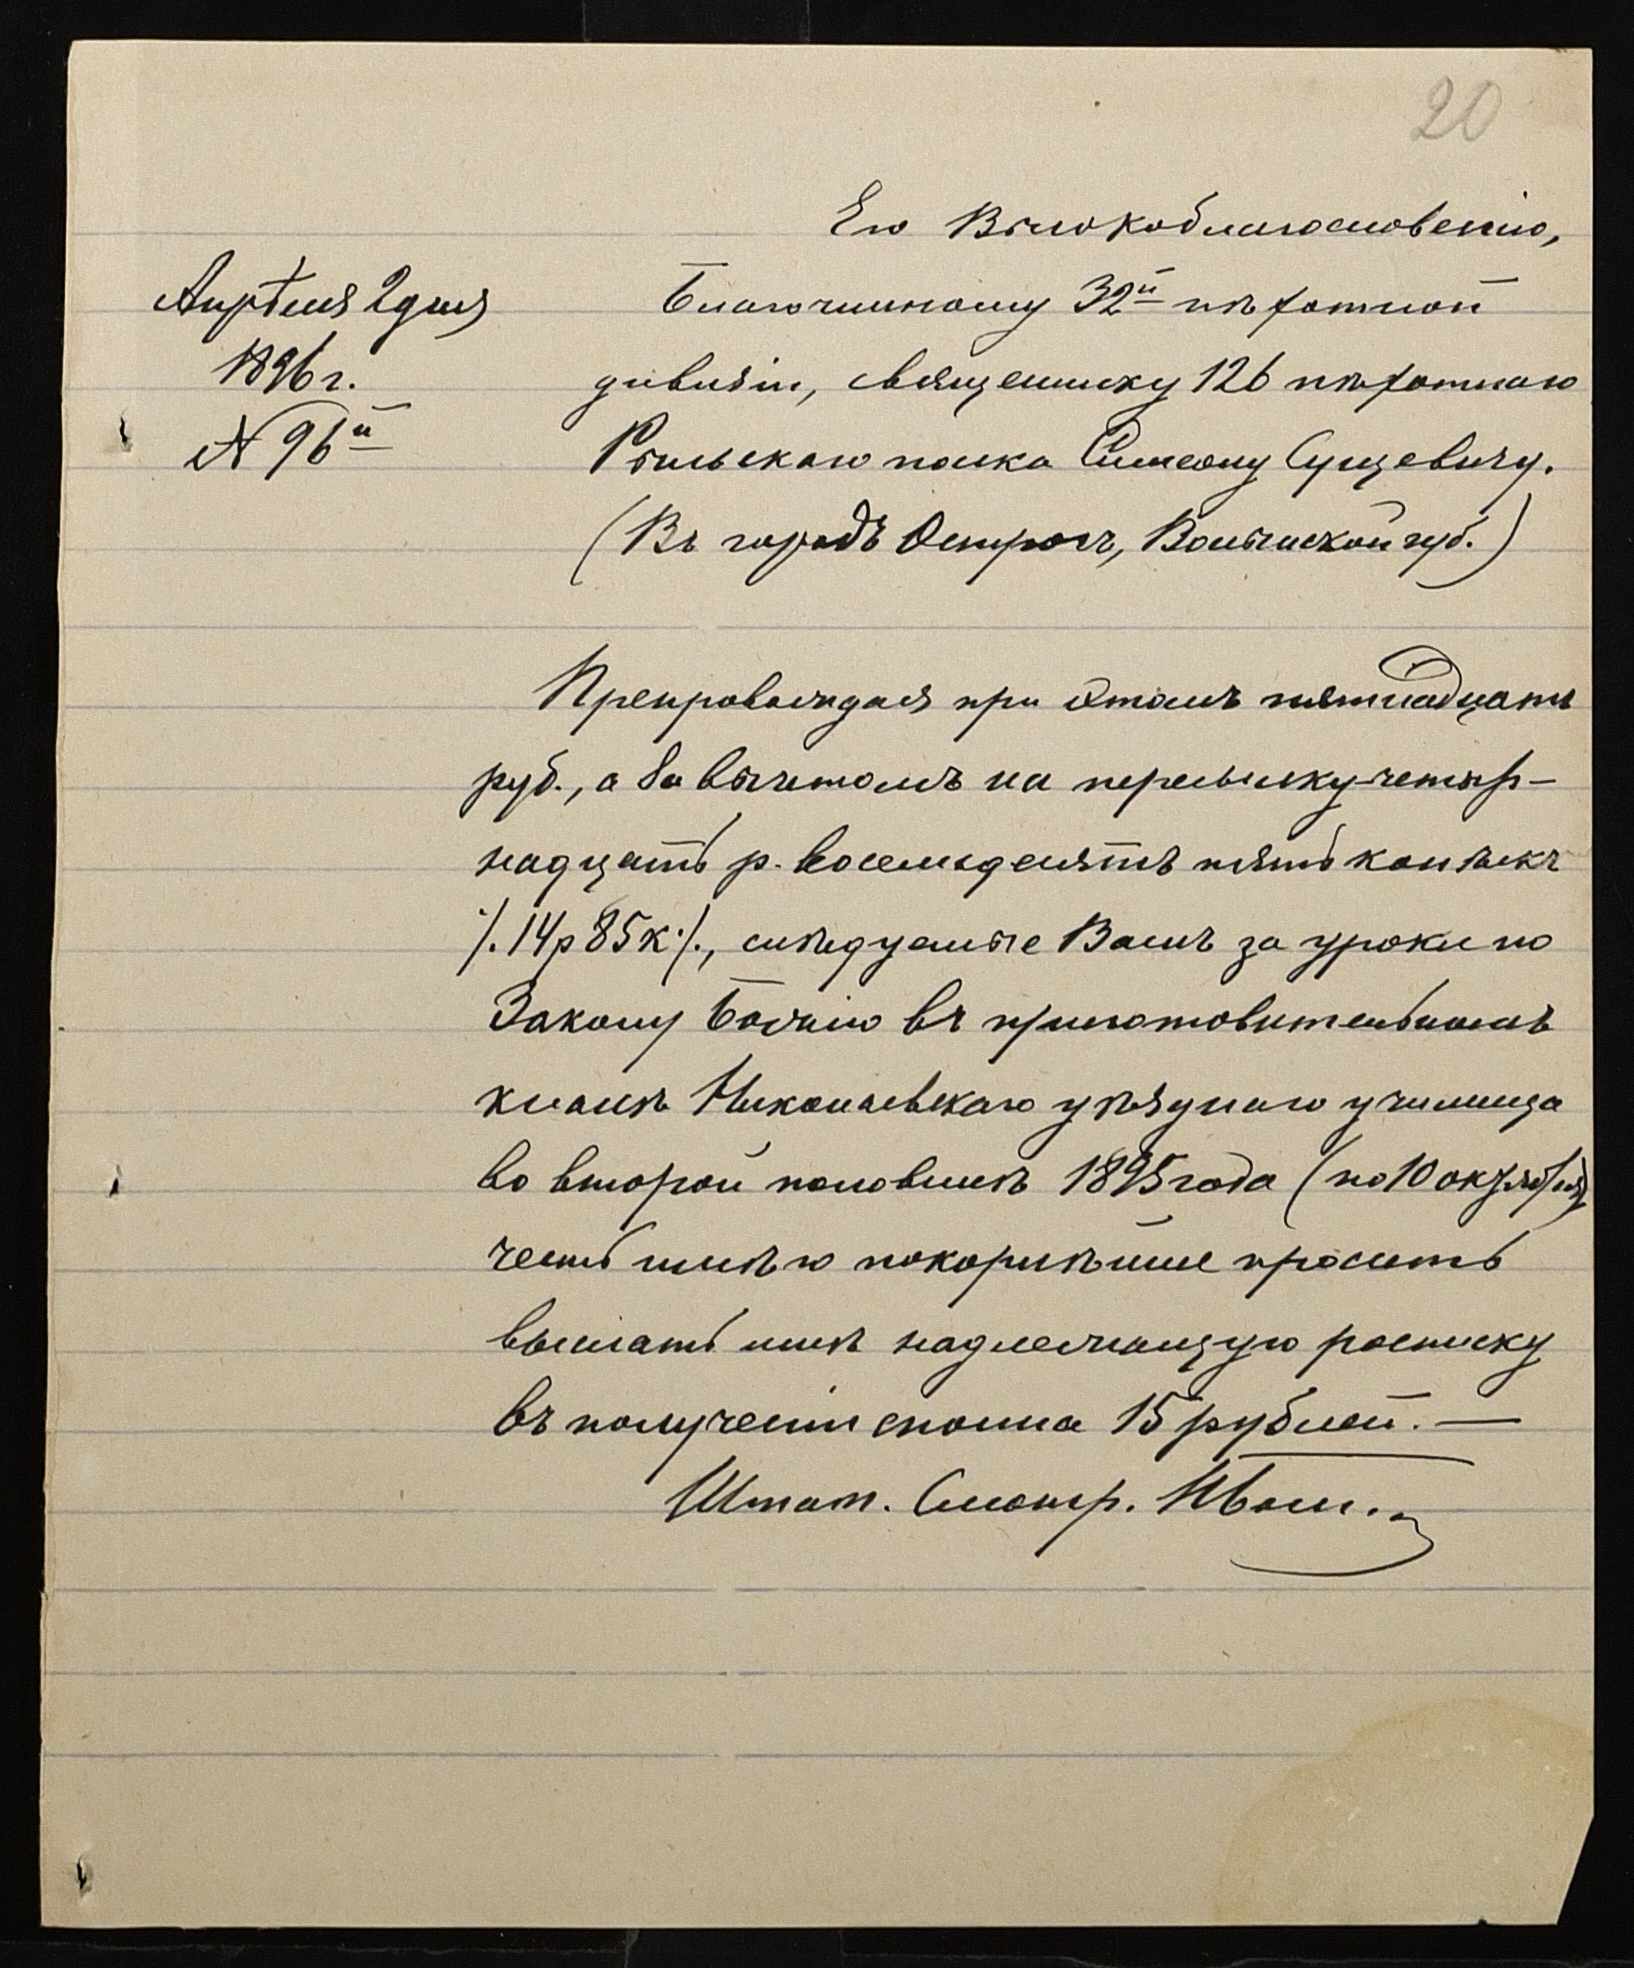 20
Его Высокоблагословенію,
Апрѣля 2 дня
1896 г.
№ 96й
Благочинному 32й пѣхотной
дивизіи, священнику 126 пѣхотнаго
Рыльскаго полка Симеону Сущевичу.
(Въ городѣ Острогѣ, Волынской губ.)
Препровождая при этомъ пятнадцать
руб., а за вычетомъ на пересылку четыр-
надцать р. восемьдесятъ пять копѣекъ
/.14 р 85 к./, слѣдуемые Вамъ за уроки по
Закону Божію въ приготовительномъ
классѣ Николаевскаго уѣзднаго училища
во второй половинѣ 1895 года (по 10 октября)
честь имѣю покорнѣйше просить
выслать мнѣ надлежащую росписку
въ полученіи сполна 15 рублей. —
Штат. Смотр.